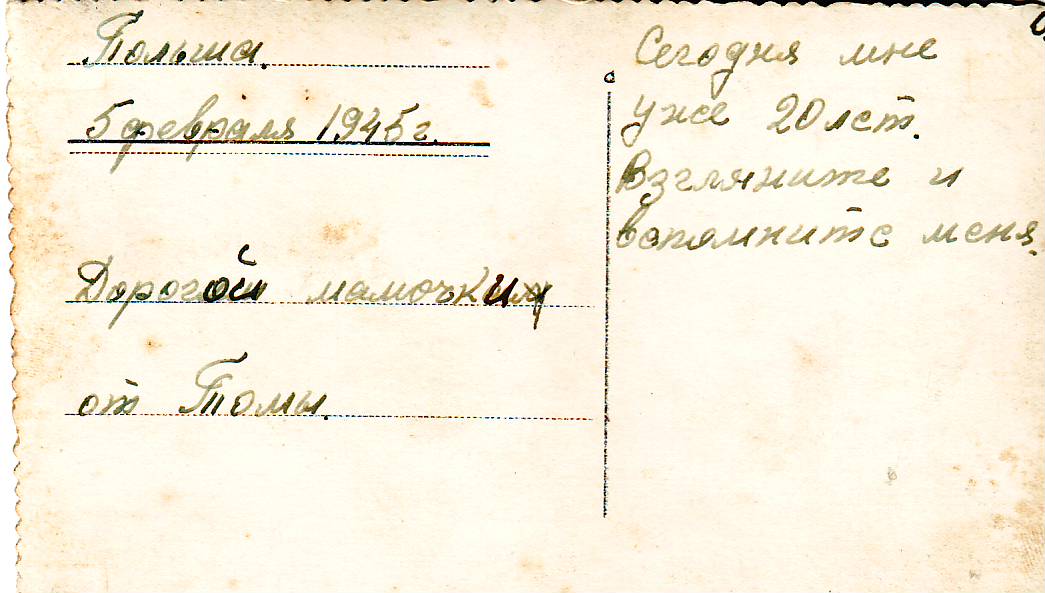 Польша.
5 февраля 1945 г.
Дорогой мамочки
от Томы.
Сегодня мне
уже 20 лет.
Взгляните и
вспомните меня.